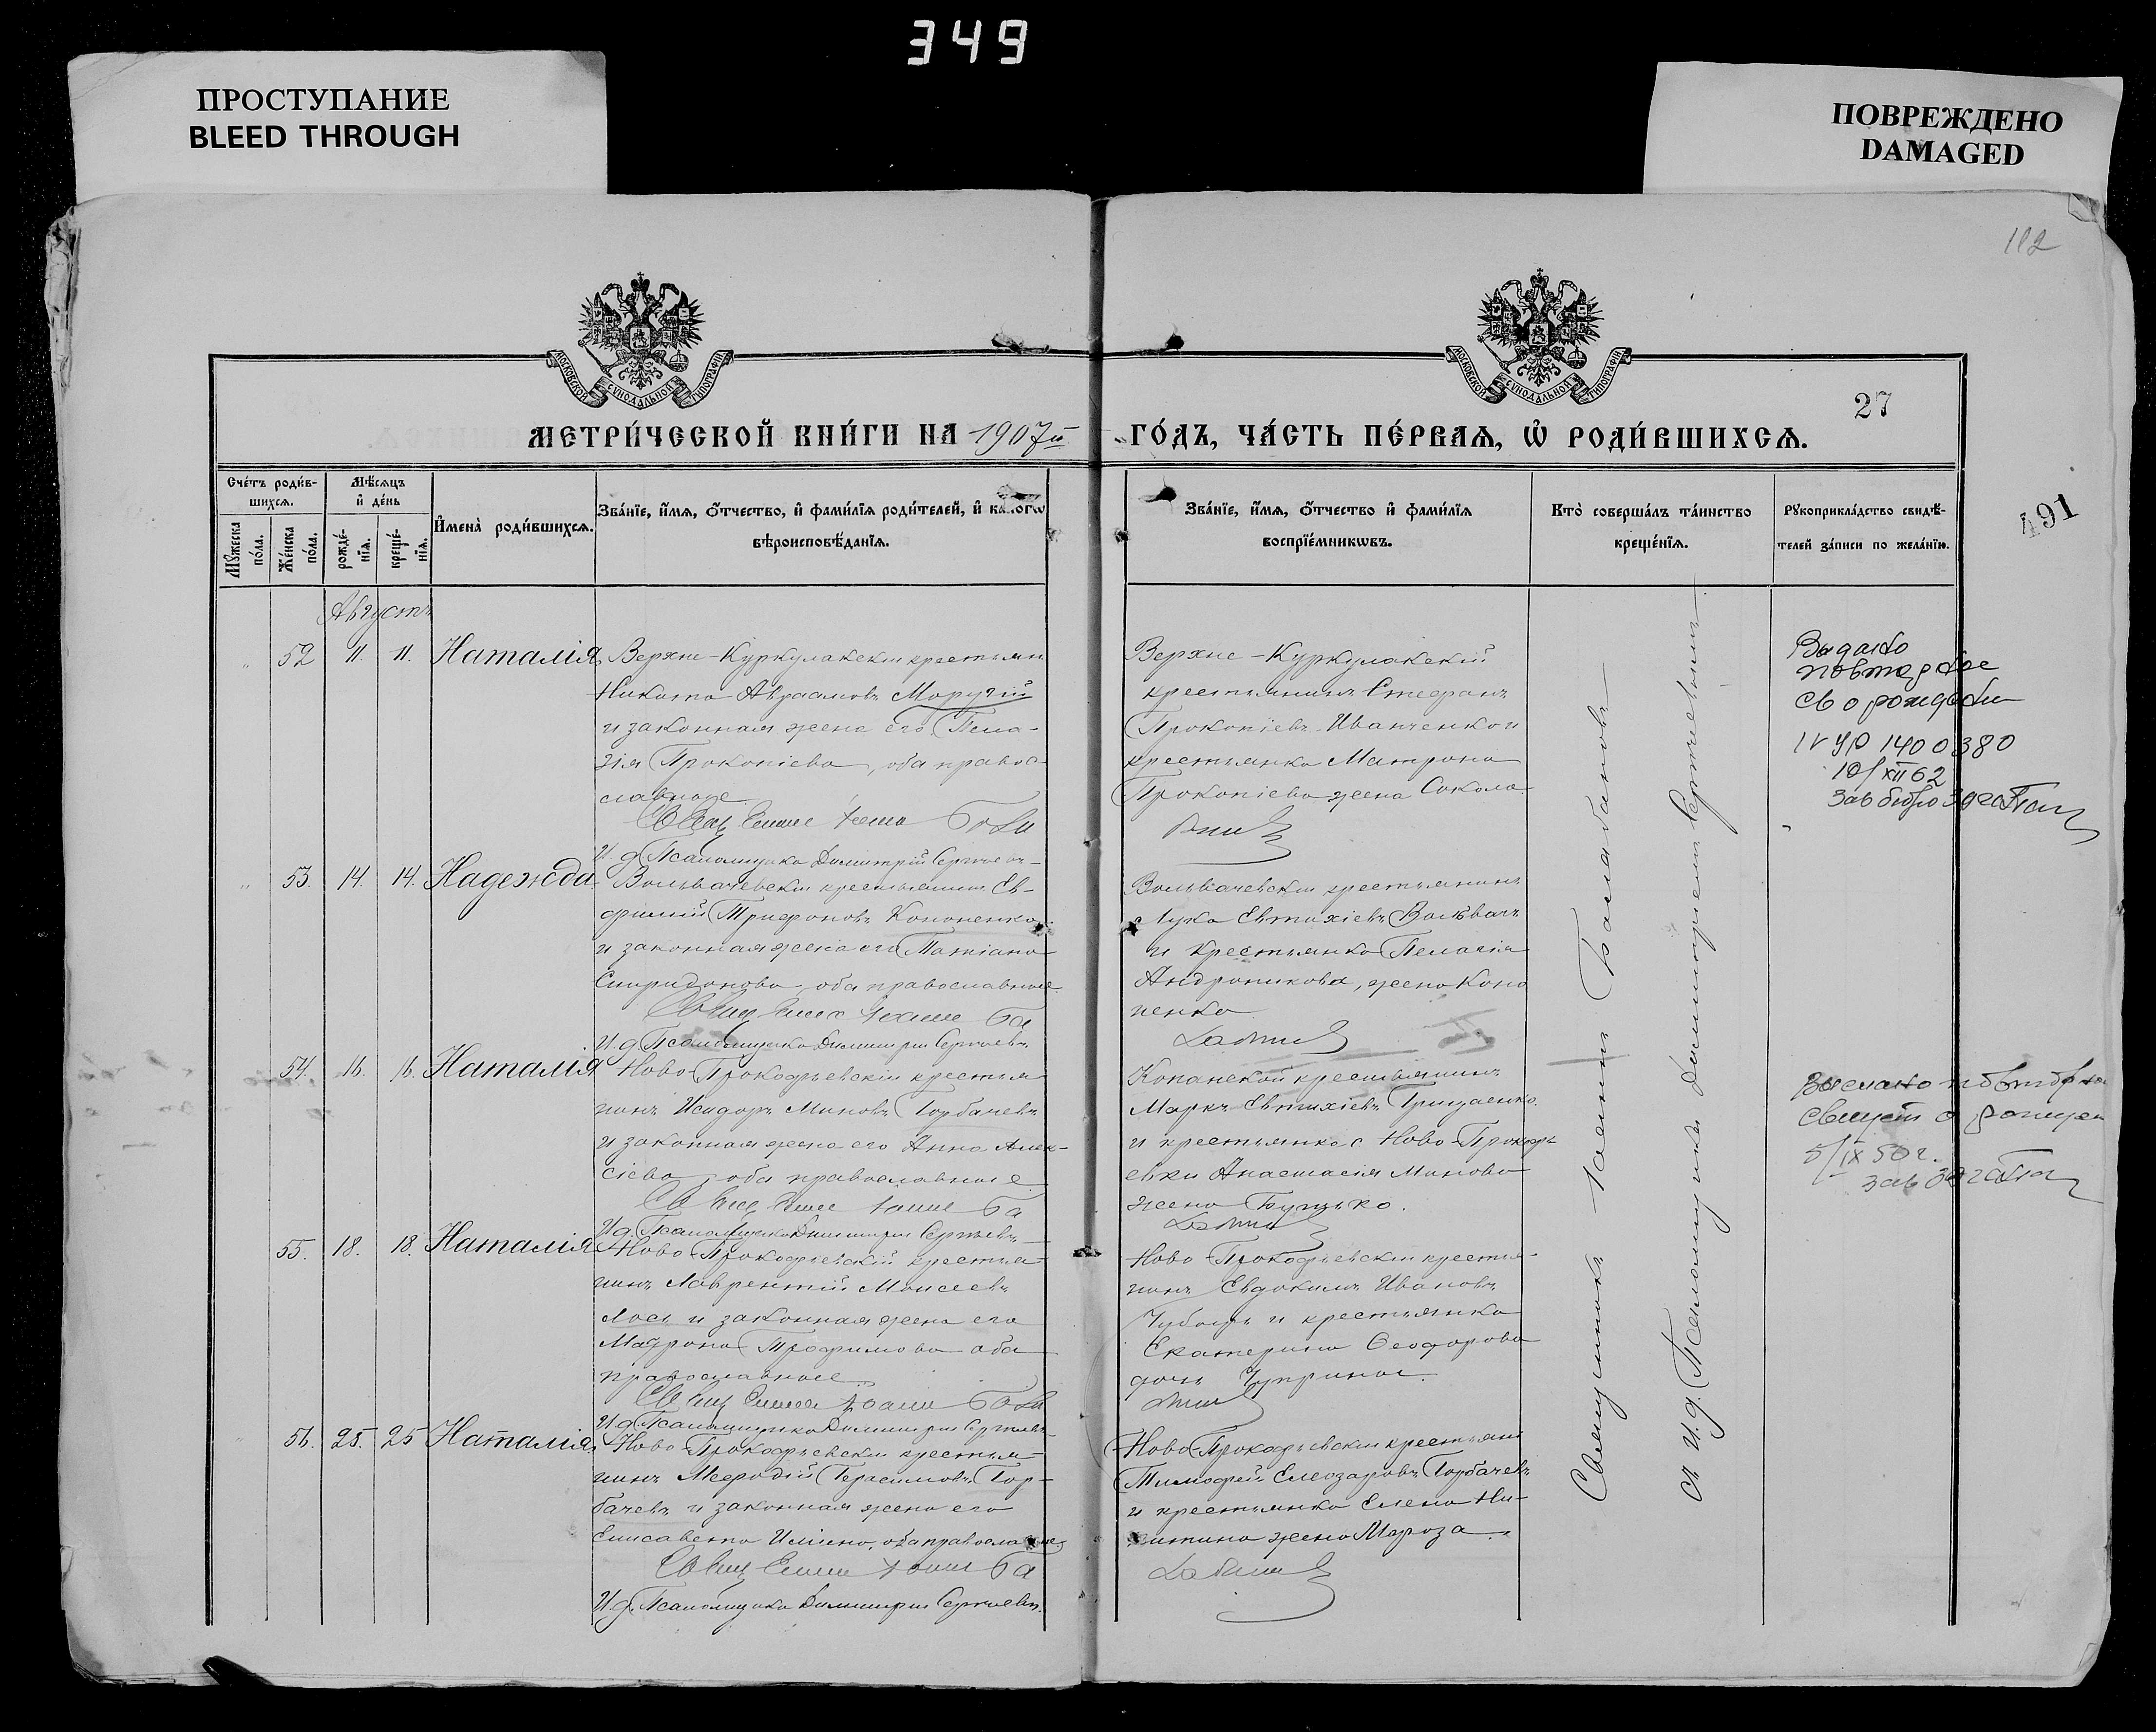 349
ПРОСТУПАНИЕ
BLEED THROUGH
ПОВРЕЖДЕНО
DAMAGED
112
МОСКОВСКОЙ СѴНОДАЛЬНОЙ ТИПОГРАФІИ
МОСКОВСКОЙ СѴНОДАЛЬНОЙ ТИПОГРАФІИ
27
МЕТРИ́ЧЕСКОЙ КНИ́ГИ НА 1907й
ГО́ДЪ, ЧА́СТЬ ПЕ́РВАѦ, Ѡ҆ РОДИ́ВШИХСѦ.
Сче́тъ роди́в-
шихсѧ.
Мꙋжеска по́ла.
Же́нска по́ла.
Мѣ́сѧцъ
и҆ де́нь
рожде́-
нїѧ.
креще́-
нїѧ.
И҆мена̀ роди́вшихсѧ.
Зва́нїе, и҆́мѧ, ѻ҆́тчество, и҆ фами́лїѧ роди́телей, и҆ како́гѡ
вѣроисповѣ́данїѧ.
Зва́нїе, и҆́мѧ, ѻ҆́тчество и҆ фами́лїѧ
воспрїе́мникѡвъ.
Кто̀ соверша́лъ та́инство
креще́нїѧ.
Рꙋкоприкла́дство свидѣ́-
телей за́писи по жела́нїю.
491
Августъ
52 11. 11. Наталія
Верхне-Куркулакскій крестьян
Никита Авраамовъ Моругій
и законная жена его Пела-
гія Прокопіева, оба правос-
славные
И. д. Псаломщика Димитрій Сергіевъ
Верхне-Куркулакскій
крестьянинъ Стефанъ
Прокопіевъ Иванченко и
крестьянка Матрона
Прокопіева жена Сокола.
Выдано
повторное
св о рождении
IV УР 1400380
10/XII 62
Зав бюро загс
53. 14. 14. Надежда
Вольвачевскій крестьянинъ Ев-
фимій Трифоновъ Кононенко
и законная жена его Татіана
Спиридонова, оба православные
И. д. Псаломщика Димитрій Сергіевъ
Вольвачевскій крестьянинъ
Лука Евтихіевъ Вольвачъ
и крестьянка Пелагія
Андроникова, жена Коно
ненка
54. 16. 16. Наталія
Ново-Прокофьевскій крестья
нинъ Исидоръ Миновъ Горбачевъ
и законная жена его Анна Алек-
сіева, оба православные
И. д. Псаломщика Димитрій Сергіевъ
Копанской крестьянинъ
Маркъ Евтихіевъ Грицаенко
и крестьянка с Ново-Прокофь
евки Анастасія Минова
жена Буцько.
Выслано повторно
свидет о рожден
5/IX 50 г.
зав загс
55. 18. 18. Наталія
Ново-Прокофьевскій крестья-
нинъ Лаврентій Моисеевъ
Лось и законная жена его
Матрона Трофимова оба
православные
И. д. Псаломщика Димитрій Сергіевъ
Ново-Прокофьевскій крестья-
нинъ Евдокимъ Ивановъ
Чубарь и крестьянка
Екатерина Феодорова
дочь Чуприна.
56. 25. 25 Наталія
Ново-Прокофьевскій крестья-
нинъ Мефодій Герасимовъ Гор-
бачевъ и законная жена его
Елисавета Ильина, оба православные
И. д. Псаломщика Димитрій Сергіевъ.
Ново-Прокофьевскій крестьян
Тимофей Елеозаровъ Горбачевъ
и крестьянка Елена Ни-
китина жена Мороза.
Священникъ Іоаннъ Балабановъ
съ и. д. Псаломщика Димитріемъ Сергіевымъ